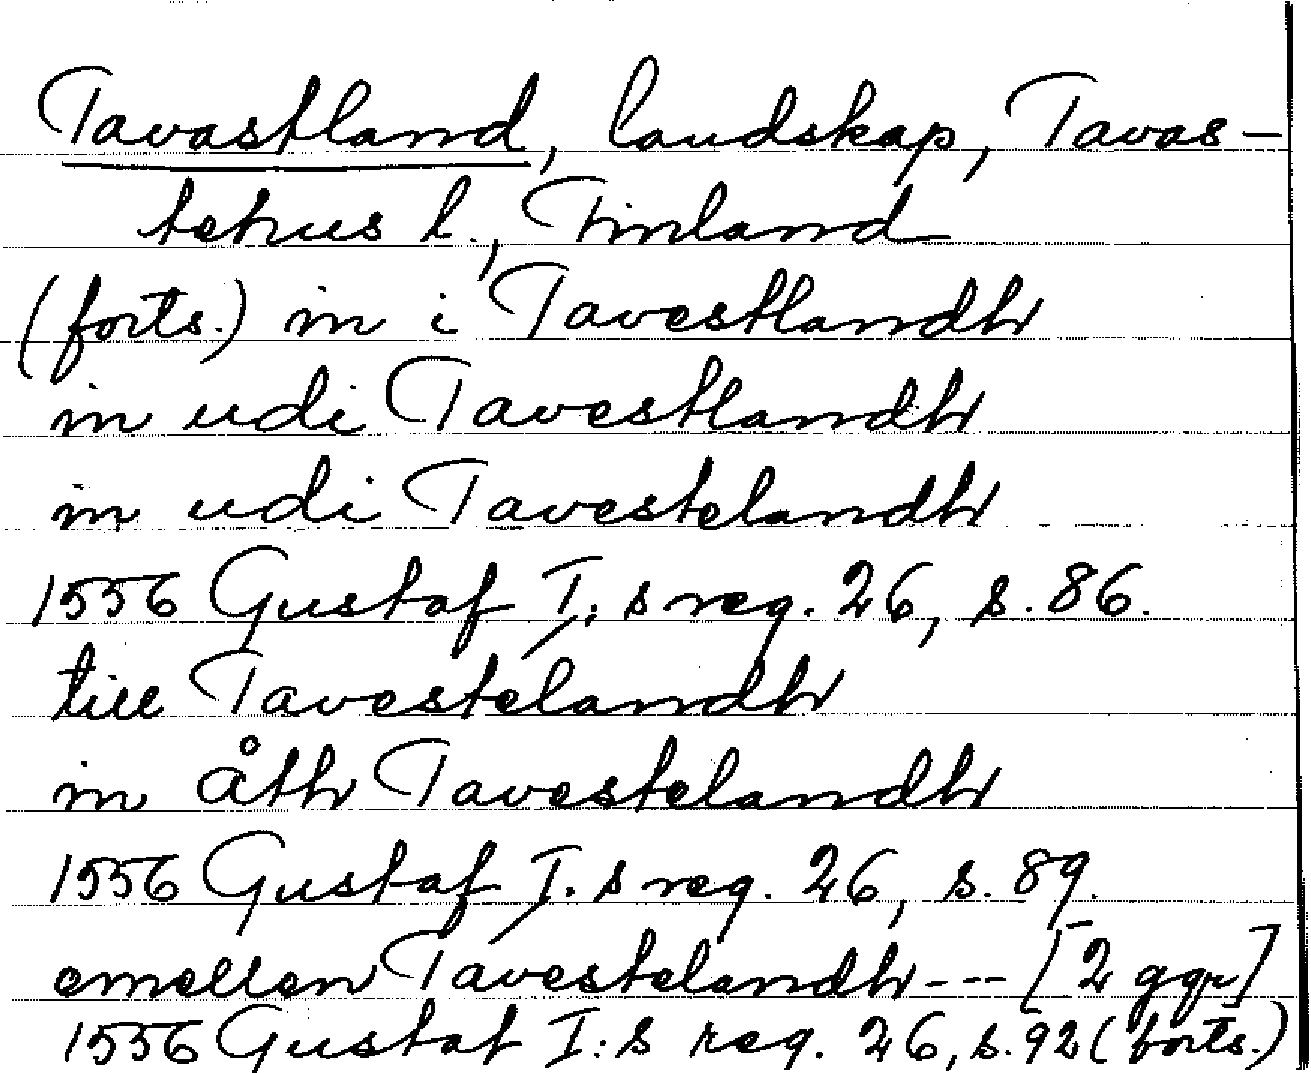 Tavastland, landskap, Tavas-
tehus l., Finland
(forts.) in i Tavestlandh
in udi Tavestlandh
in udi Tavestelandh
1556 Gustaf I:s reg. 26, s. 86.
till Tavestelandh
in åth Tavestelandh
1556 Gustaf I.s reg. 26, s. 89.
emellen Tavestelandh--- [2 ggr]
1556 Gustaf I:s reg. 26, s. 92 (forts.)